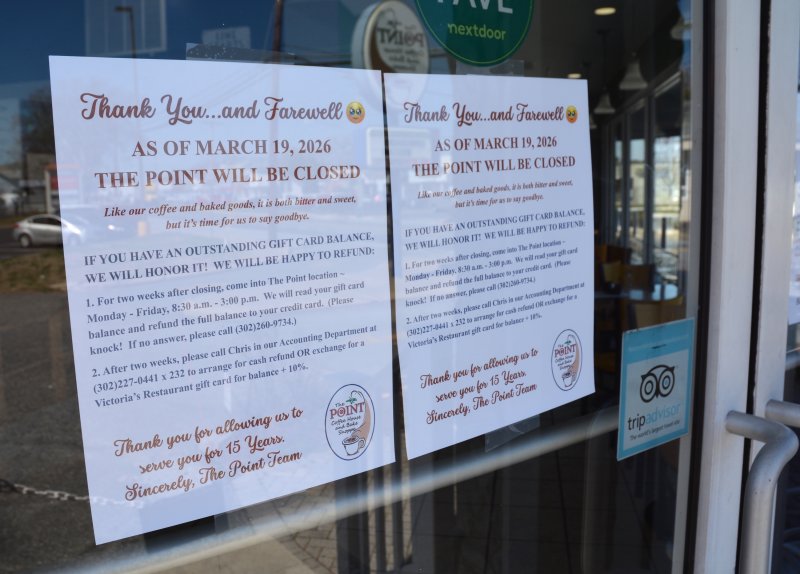 FAVE
nextdoor
POINT
Thank You...and Farewell 🥹
AS OF MARCH 19, 2026
THE POINT WILL BE CLOSED
Like our coffee and baked goods, it is both bitter and sweet,
but it's time for us to say goodbye.
IF YOU HAVE AN OUTSTANDING GIFT CARD BALANCE,
WE WILL HONOR IT! WE WILL BE HAPPY TO REFUND:
1. For two weeks after closing, come into The Point location ~
Monday - Friday, 8:30 a.m. - 3:00 p.m. We will read your gift card
balance and refund the full balance to your credit card. (Please
knock! If no answer, please call (302)260-9734.)
2. After two weeks, please call Chris in our Accounting Department at
(302)227-0441 x 232 to arrange for cash refund OR exchange for a
Victoria's Restaurant gift card for balance + 10%.
Thank you for allowing us to
serve you for 15 Years.
Sincerely, The Point Team
The
POINT
Coffee House
and Bake
Shoppe
Thank You...and Farewell 🥹
AS OF MARCH 19, 2026
THE POINT WILL BE CLOSED
Like our coffee and baked goods, it is both bitter and sweet,
but it's time for us to say goodbye.
IF YOU HAVE AN OUTSTANDING GIFT CARD BALANCE,
WE WILL HONOR IT! WE WILL BE HAPPY TO REFUND:
1. For two weeks after closing, come into The Point location ~
Monday - Friday, 8:30 a.m. - 3:00 p.m. We will read your gift card
balance and refund the full balance to your credit card. (Please
knock! If no answer, please call (302)260-9734.)
2. After two weeks, please call Chris in our Accounting Department at
(302)227-0441 x 232 to arrange for cash refund OR exchange for a
Victoria's Restaurant gift card for balance + 10%.
Thank you for allowing us to
serve you for 15 Years.
Sincerely, The Point Team
The
POINT
Coffee House
and Bake
Shoppe
tripadvisor
The world's largest travel site